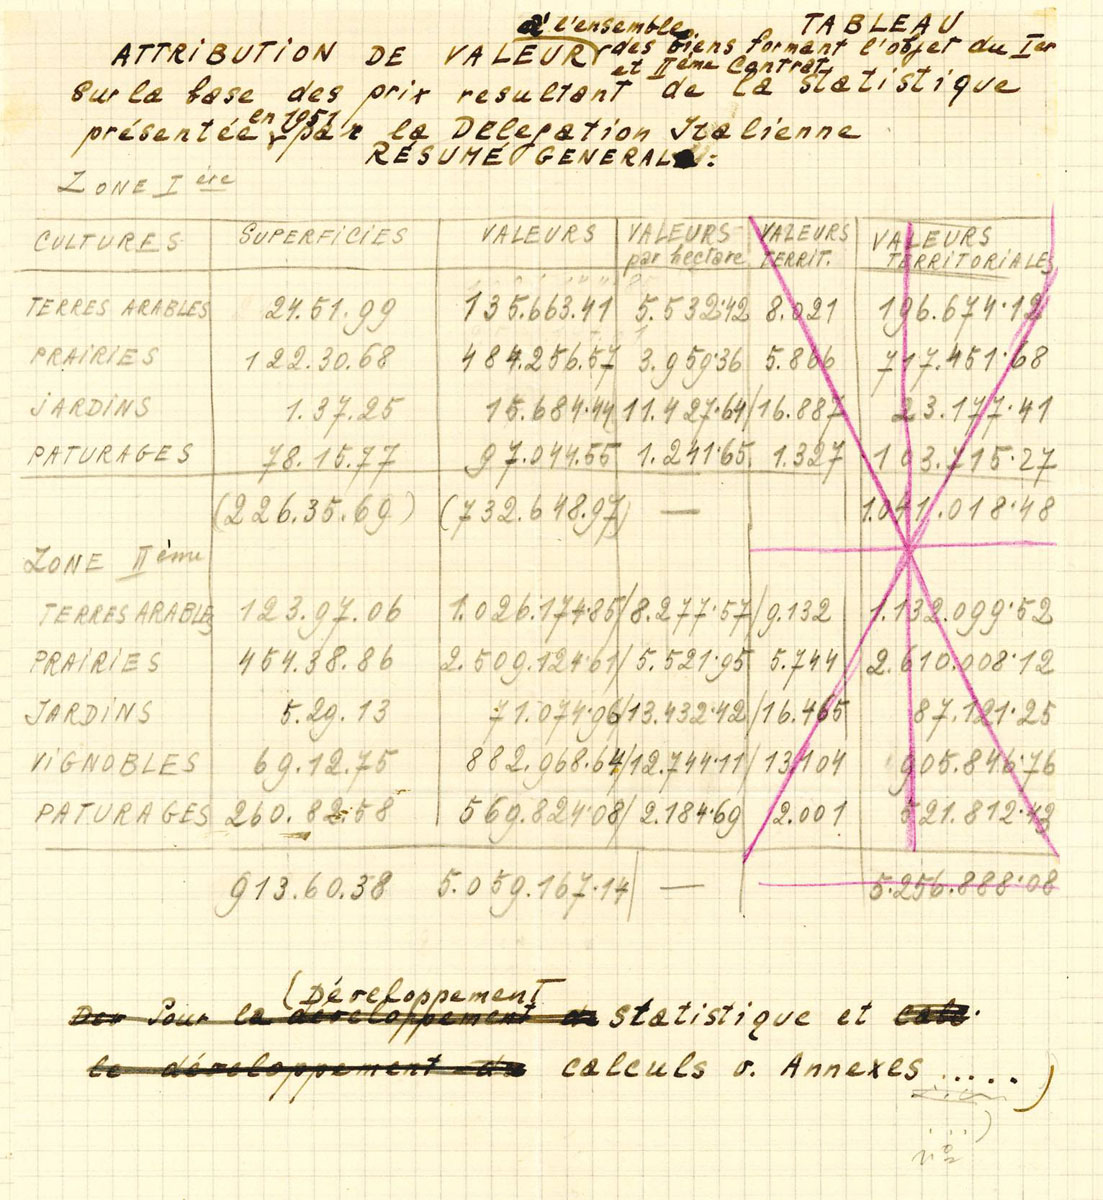 TABLEAU
ATTRIBUTION DE VALEUR à l'ensemble des biens formant l'objet du Ier et IIème Contrat
Sur la base des prix resultant de la statistique
présentée en 1951 par la Délégation Italienne
RÉSUMÉ GENERAL:
ZONE Ière
CULTURES SUPERFICIES VALEURS VALEURS par hectare VALEURS TERRIT. VALEURS TERRITORIALES
TERRES ARABLES 24.51.99 135.663.41 5.532.42 8.021 196.674.12
PRAIRIES 122.30.68 484.256.57 3.959.36 5.866 717.451.68
JARDINS 1.37.25 15.684.44 11.427.64 16.887 23.177.41
PATURAGES 78.15.77 97.044.55 1.241.65 1.327 103.715.27
(226.35.69) (732.648.97) — 1.041.018.48
ZONE IIème
TERRES ARABLES 123.97.06 1.026.174.85 8.277.57 9.132 1.132.099.52
PRAIRIES 454.38.86 2.509.124.61 5.521.95 5.744 2.610.008.12
JARDINS 5.29.13 71.074.06 13.432.42 16.465 87.121.25
VIGNOBLES 69.12.75 882.068.64 12.744.11 13.104 905.846.76
PATURAGES 260.82.58 569.824.08 2.184.69 2.001 521.812.42
913.60.38 5.059.167.14 — 5.256.888.08
(Développement
Der Pour la développement de statistique et calc.
le développement de calculs v. Annexes .....)